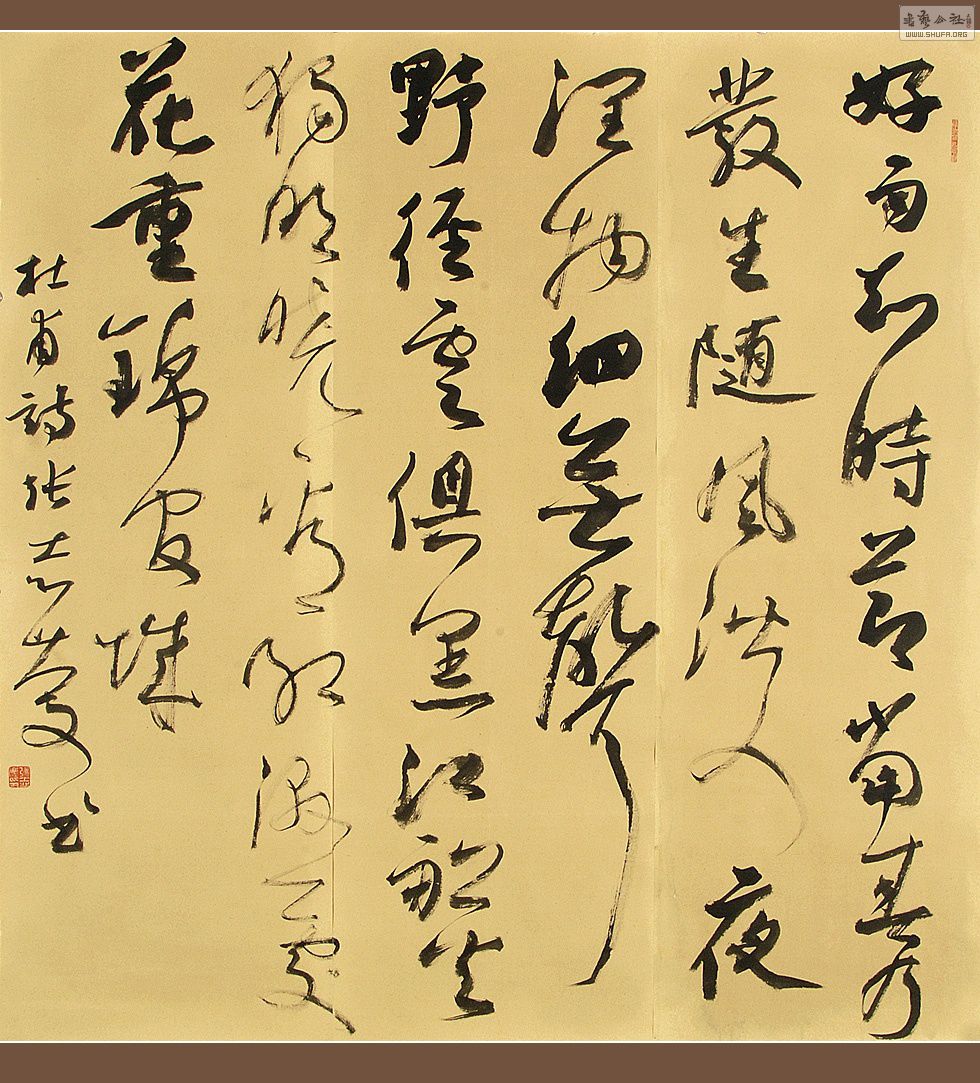 書藝公社
WWW.SHUFA.ORG
好雨知時節當春乃
發生随風潛入夜
潤物細無聲
野徑雲俱黑江船火
獨明曉看紅濕處
花重錦官城
杜甫詩張志慶書